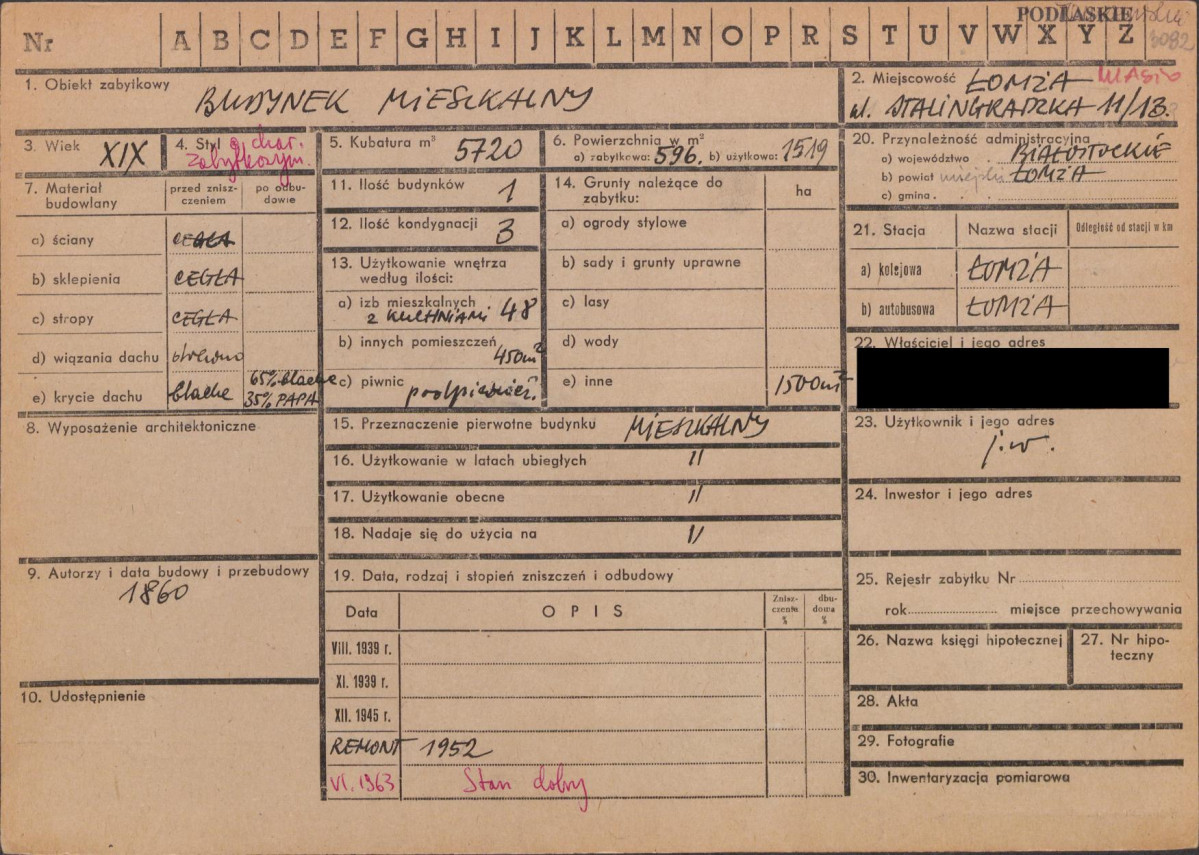 PODŁASKIE
Nr A B C D E F G H I J K L M N O P R S T U V W X Y Z
3092
1. Obiekt zabytkowy
BUDYNEK MIESZKALNY
2. Miejscowość ŁOMŻA MIASTO
ul. STALINGRADZKA 11/13.
3. Wiek XIX
4. Styl o char. zabytkowym.
5. Kubatura m³ 5720
6. Powierzchnia w m²
a) zabytkowa: 596, b) użytkowa: 1519
20. Przynależność administracyjna
a) województwo BIAŁOSTOCKIE
b) powiat miejski ŁOMŻA
c) gmina
7. Materiał budowlany
przed zniszczeniem
po odbudowie
a) ściany CEGŁA
b) sklepienia CEGŁA
c) stropy CEGŁA
d) wiązania dachu drewno
e) krycie dachu blacha 65% blacha
35% PAPA
11. Ilość budynków 1
12. Ilość kondygnacji 3
13. Użytkowanie wnętrza
według ilości:
a) izb mieszkalnych
z KUCHNIAMI 48
b) innych pomieszczeń
450m²
c) piwnic podpiwnicz.
14. Grunty należące do
zabytku:
ha
a) ogrody stylowe
b) sady i grunty uprawne
c) lasy
d) wody
e) inne 1500m²
21. Stacja
Nazwa stacji
Odległość od stacji w km
a) kolejowa ŁOMŻA
b) autobusowa ŁOMŻA
22. Właściciel i jego adres
8. Wyposażenie architektoniczne
15. Przeznaczenie pierwotne budynku MIESZKALNY
16. Użytkowanie w latach ubiegłych "
17. Użytkowanie obecne "
18. Nadaje się do użycia na "
23. Użytkownik i jego adres
j.w.
24. Inwestor i jego adres
9. Autorzy i data budowy i przebudowy
1860
19. Data, rodzaj i stopień zniszczeń i odbudowy
Data
OPIS
Znisz-
czenia
%
dbu-
dowa
%
VIII. 1939 r.
XI. 1939 r.
XII. 1945 r.
REMONT 1952
VI. 1963 Stan dobry
25. Rejestr zabytku Nr
rok miejsce przechowywania
26. Nazwa księgi hipotecznej
27. Nr hipo-
teczny
10. Udostępnienie
28. Akta
29. Fotografie
30. Inwentaryzacja pomiarowa